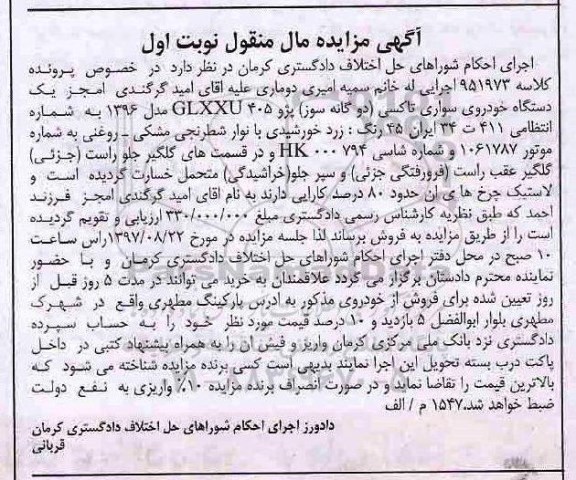 آگهی مزایده مال منقول نوبت اول
اجرای احکام شوراهای حل اختلاف دادگستری کرمان در نظر دارد در خصوص پرونده
کلاسه ۹۵۱۹۷۳ اجرایی له خانم سمیه امیری دوماری علیه اقای امید گرگندی امجز یک
دستگاه خودروی سواری تاکسی (دو گانه سوز) پژو ۴۰۵ GLXXU مدل ۱۳۹۶ به شماره
انتظامی ۴۱۱ ت ۳۴ ایران ۴۵ رنگ : زرد خورشیدی با نوار شطرنجی مشکی ـ روغنی به شماره
موتور ۱۰۶۱۷۸۷ و شماره شاسی ۷۹۴ ۰۰۰ HK و در قسمت های گلگیر جلو راست (جزئی)
گلگیر عقب راست (فرورفتگی جزئی) و سپر جلو(خراشیدگی) متحمل خسارت گردیده است و
لاستیک چرخ ها ی ان حدود ۸۰ درصد کارایی دارند به نام اقای امید گرگندی امجز فرزند
احمد که طبق نظریه کارشناس رسمی دادگستری مبلغ ۳۳۰/۰۰۰/۰۰۰ ارزیابی و تقویم گردیده
است را از طریق مزایده به فروش برساند لذا جلسه مزایده در مورخ ۱۳۹۷/۰۸/۲۲راس ساعت
۱۰ صبح در محل دفتر اجرای احکام شوراهای حل اختلاف دادگستری کرمان و با حضور
نماینده محترم دادستان برگزار می گردد علاقمندان به خرید می توانند در مدت ۵ روز قبل از
روز تعیین شده برای فروش از خودروی مذکور به ادرس پارکینگ مطهری واقع در شهرک
مطهری بلوار ابوالفضل ۵ بازدید و ۱۰ درصد قیمت مورد نظر خود را به حساب سپرده
دادگستری نزد بانک ملی مرکزی کرمان واریز و فیش ان را به همراه پیشنهاد کتبی در داخل
پاکت درب بسته تحویل این اجرا نمایند بدیهی است کسی برنده مزایده شناخته می شود که
بالاترین قیمت را تقاضا نماید و در صورت انصراف برنده مزایده ۱۰٪ واریزی به نفع دولت
ضبط خواهد شد.۱۵۴۷ م / الف
دادورز اجرای احکام شوراهای حل اختلاف دادگستری کرمان
قربانی